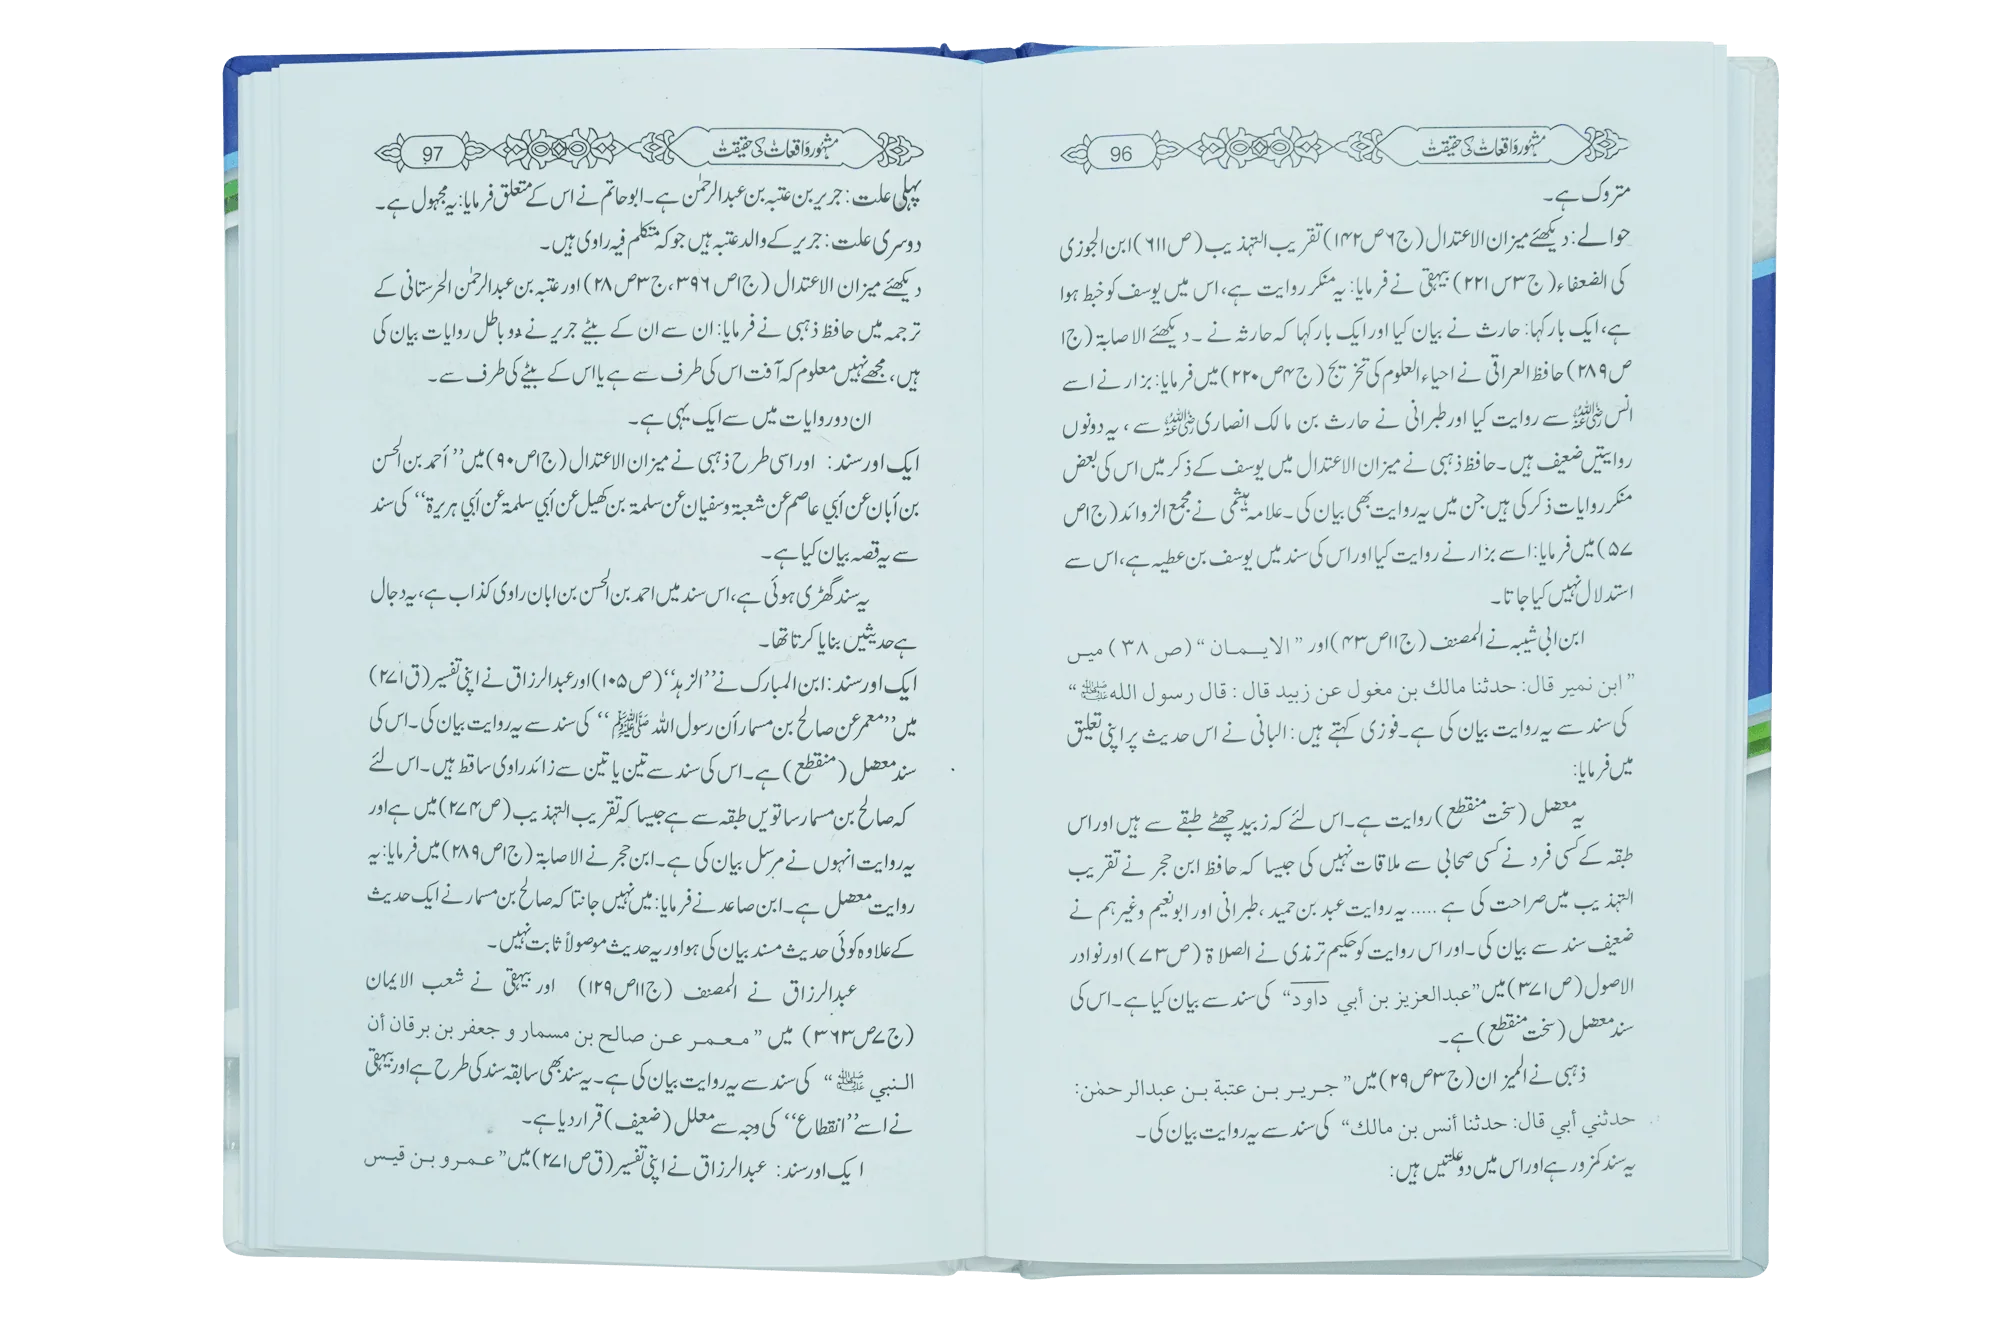 مشہور واقعات کی حقیقت 96
متروک ہے۔
حوالے: دیکھئے میزان الاعتدال (ج۶ص۱۴۲) تقریب التہذیب (ص۶۱۱) ابن الجوزی
کی الضعفاء (ج۳س۲۲۱) بیہقی نے فرمایا: یہ منکر روایت ہے، اس میں یوسف کو خبط ہوا
ہے، ایک بار کہا: حارث نے بیان کیا اور ایک بار کہا کہ حارثہ نے ۔ دیکھئے الاصابۃ (ج۱
ص۲۸۹) حافظ العراقی نے احیاء العلوم کی تخریج (ج۴ص۲۲۰) میں فرمایا: بزار نے اسے
انس رضی اللہ عنہ سے روایت کیا اور طبرانی نے حارث بن مالک انصاری رضی اللہ عنہ سے ، یہ دونوں
روایتیں ضعیف ہیں۔ حافظ ذہبی نے میزان الاعتدال میں یوسف کے ذکر میں اس کی بعض
منکر روایات ذکر کی ہیں جن میں یہ روایت بھی بیان کی۔ علامہ ہیثمی نے مجمع الزوائد (ج۱ص
۵۷) میں فرمایا: اسے بزار نے روایت کیا اور اس کی سند میں یوسف بن عطیہ ہے، اس سے
استدلال نہیں کیا جاتا۔
ابن ابی شیبہ نے المصنف (ج۱۱ص۴۳) اور ”الایمان“ (ص۳۸) میں
”ابن نمیر قال: حدثنا مالك بن مغول عن زبید قال : قال رسول الله ﷺ“
کی سند سے یہ روایت بیان کی ہے۔ فوزی کہتے ہیں: البانی نے اس حدیث پر اپنی تعلیق
میں فرمایا:
یہ معضل (سخت منقطع) روایت ہے۔ اس لئے کہ زبید چھٹے طبقے سے ہیں اور اس
طبقہ کے کسی فرد نے کسی صحابی سے ملاقات نہیں کی جیسا کہ حافظ ابن حجر نے تقریب
التہذیب میں صراحت کی ہے ..... یہ روایت عبد بن حمید ، طبرانی اور ابونعیم وغیرہم نے
ضعیف سند سے بیان کی۔ اور اس روایت کو حکیم ترمذی نے الصلاۃ (ص۷۳) اور نوادر
الاصول (ص۳۷۱) میں ”عبدالعزیز بن أبي داود“ کی سند سے بیان کیا ہے۔ اس کی
سند معضل (سخت منقطع) ہے۔
ذہبی نے المیزان (ج۳ص۲۹) میں ”جریر بن عتبة بن عبدالرحمٰن:
حدثني أبي قال: حدثنا أنس بن مالك“ کی سند سے یہ روایت بیان کی۔
یہ سند کمزور ہے اور اس میں دو علتیں ہیں:
مشہور واقعات کی حقیقت 97
پہلی علت: جریر بن عتبہ بن عبدالرحمٰن ہے۔ ابوحاتم نے اس کے متعلق فرمایا: یہ مجہول ہے۔
دوسری علت: جریر کے والد عتبہ ہیں جو کہ متکلم فیہ راوی ہیں۔
دیکھئے میزان الاعتدال (ج۱ص۳۹۶، ج۳ص۲۸) اور عتبہ بن عبدالرحمٰن الحرستانی کے
ترجمہ میں حافظ ذہبی نے فرمایا: ان سے ان کے بیٹے جریر نے دو باطل روایات بیان کی
ہیں، مجھے نہیں معلوم کہ آفت اس کی طرف سے ہے یا اس کے بیٹے کی طرف سے۔
ان دو روایات میں سے ایک یہی ہے۔
ایک اور سند: اور اسی طرح ذہبی نے میزان الاعتدال (ج۱ص۹۰) میں ”أحمد بن الحسن
بن أبان عن أبي عاصم عن شعبة وسفیان عن سلمة بن كهيل عن أبي سلمة عن أبي هريرة“ کی سند
سے یہ قصہ بیان کیا ہے۔
یہ سند گھڑی ہوئی ہے، اس سند میں احمد بن الحسن بن ابان راوی کذاب ہے، یہ دجال
ہے حدیثیں بنایا کرتا تھا۔
ایک اور سند: ابن المبارک نے ”الزہد“ (ص۱۰۵) اور عبدالرزاق نے اپنی تفسیر (ق۲۷۱)
میں ”معمر عن صالح بن مسمار أن رسول اللہ ﷺ“ کی سند سے یہ روایت بیان کی۔ اس کی
سند معضل (منقطع) ہے۔ اس کی سند سے تین یا تین سے زائد راوی ساقط ہیں۔ اس لئے
کہ صالح بن مسمار ساتویں طبقہ سے ہے جیسا کہ تقریب التہذیب (ص۲۷۴) میں ہے اور
یہ روایت انہوں نے مرسل بیان کی ہے۔ ابن حجر نے الاصابۃ (ج۱ص۲۸۹) میں فرمایا: یہ
روایت معضل ہے۔ ابن صاعد نے فرمایا: میں نہیں جانتا کہ صالح بن مسمار نے ایک حدیث
کے علاوہ کوئی حدیث مسند بیان کی ہو اور یہ حدیث موصولاً ثابت نہیں۔
عبدالرزاق نے المصنف (ج۱۱ص۱۲۹) اور بیہقی نے شعب الایمان
(ج۷ص۳۶۳) میں ”معمر عن صالح بن مسمار و جعفر بن برقان أن
النبي ﷺ“ کی سند سے یہ روایت بیان کی ہے۔ یہ سند بھی سابقہ سند کی طرح ہے اور بیہقی
نے اسے ”انقطاع“ کی وجہ سے معلل (ضعیف) قرار دیا ہے۔
ایک اور سند: عبدالرزاق نے اپنی تفسیر (ق ص۲۷۱) میں ”عمرو بن قیس